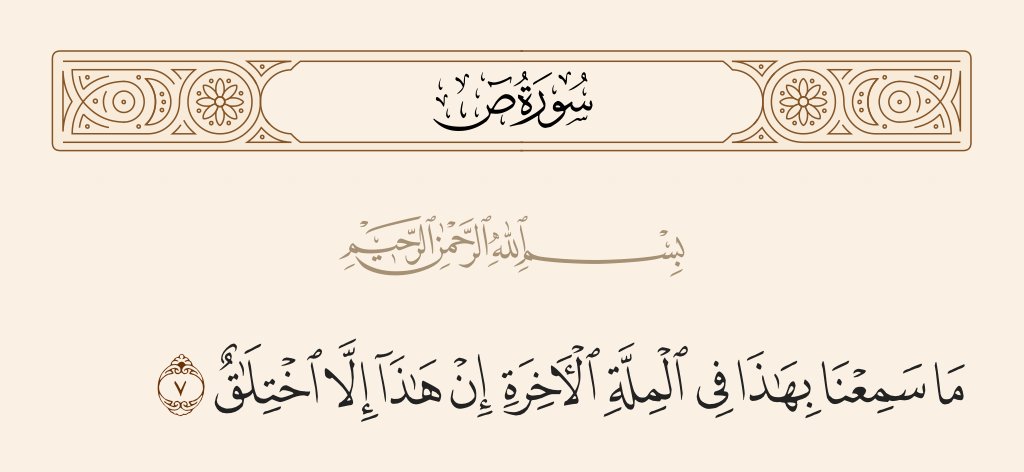 سُورَةُ صٓ
بِسْمِ ٱللَّهِ ٱلرَّحْمَٰنِ ٱلرَّحِيمِ
مَا سَمِعْنَا بِهَٰذَا فِى ٱلْمِلَّةِ ٱلْـَٔاخِرَةِ إِنْ هَٰذَآ إِلَّا ٱخْتِلَٰقٌ ٧